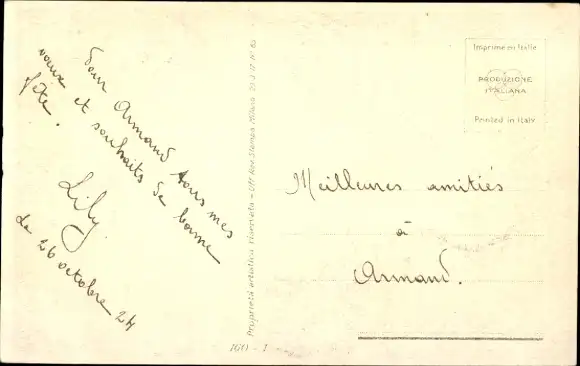 Pour Armand tous mes
vœux et souhaits de bonne
fête.
Lily
Le 26 octobre 24
Proprietà artistica riservata - Uff. Rev. Stampa Milano
160 - 1
Imprimé en Italie
PRODUZIONE
ITALIANA
Printed in Italy
Meilleures amitiés
à
Armand.